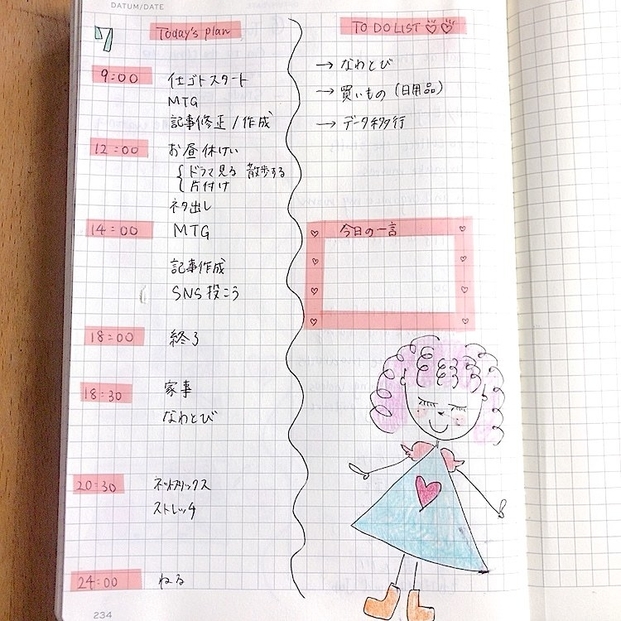 DATUM/DATE
7
Today's plan
9:00
仕ゴトスタート
MTG
記事修正/作成
12:00
お昼休けい
ドラマ見る 散歩する
片付け
ネタ出し
14:00
MTG
記事作成
SNS投こう
18:00
終了
18:30
家事
なわとび
20:30
ネットフリックス
ストレッチ
24:00
ねる
234
TO DO LIST
→ なわとび
→ 買いもの (日用品)
→ データ移行
今日の一言